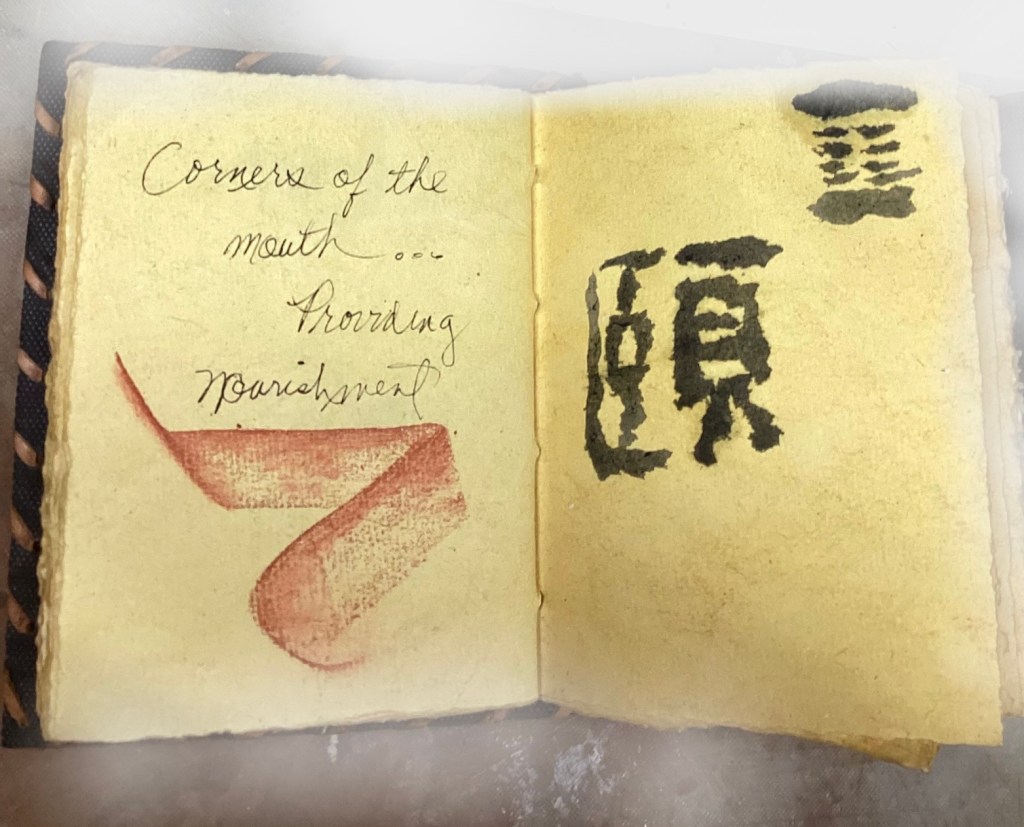 Corners of the
mouth ...
Providing
Nourishment
頤